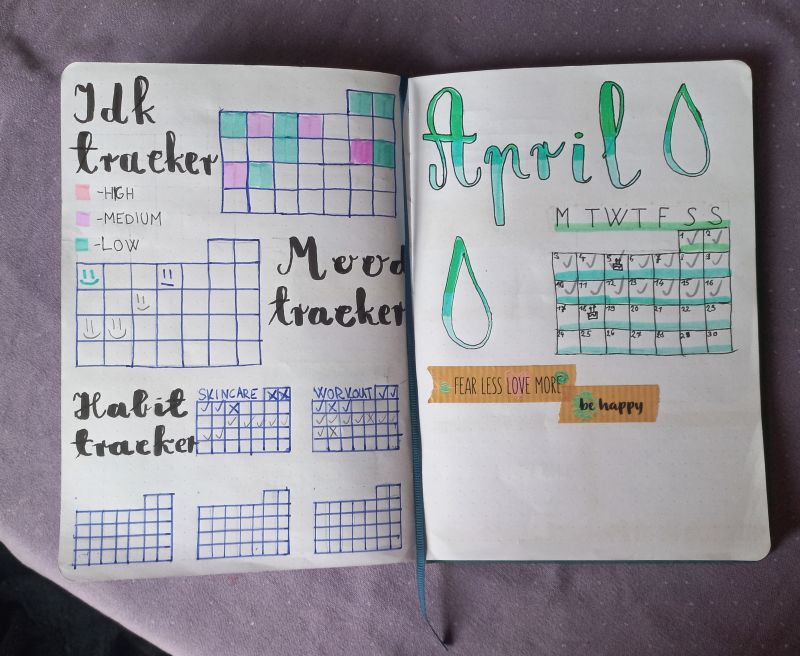 Idk
tracker
-HIGH
-MEDIUM
-LOW
Mood
tracker
Habit
tracker
SKINCARE
WORKOUT
April
M T W T F S S
1 2
3 4 5 6 7 8 9
10 11 12 13 14 15 16
17 18 19 20 21 22 23
24 25 26 27 28 29 30
FEAR LESS LOVE MORE
be happy